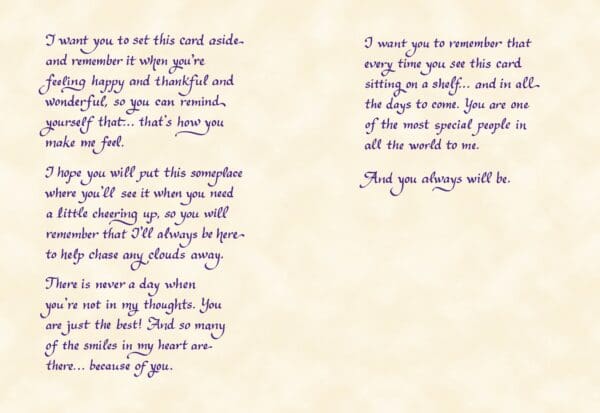 I want you to set this card aside
and remember it when you're
feeling happy and thankful and
wonderful, so you can remind
yourself that... that's how you
make me feel.
I hope you will put this someplace
where you'll see it when you need
a little cheering up, so you will
remember that I'll always be here
to help chase any clouds away.
There is never a day when
you're not in my thoughts. You
are just the best! And so many
of the smiles in my heart are
there... because of you.
I want you to remember that
every time you see this card
sitting on a shelf... and in all
the days to come. You are one
of the most special people in
all the world to me.
And you always will be.